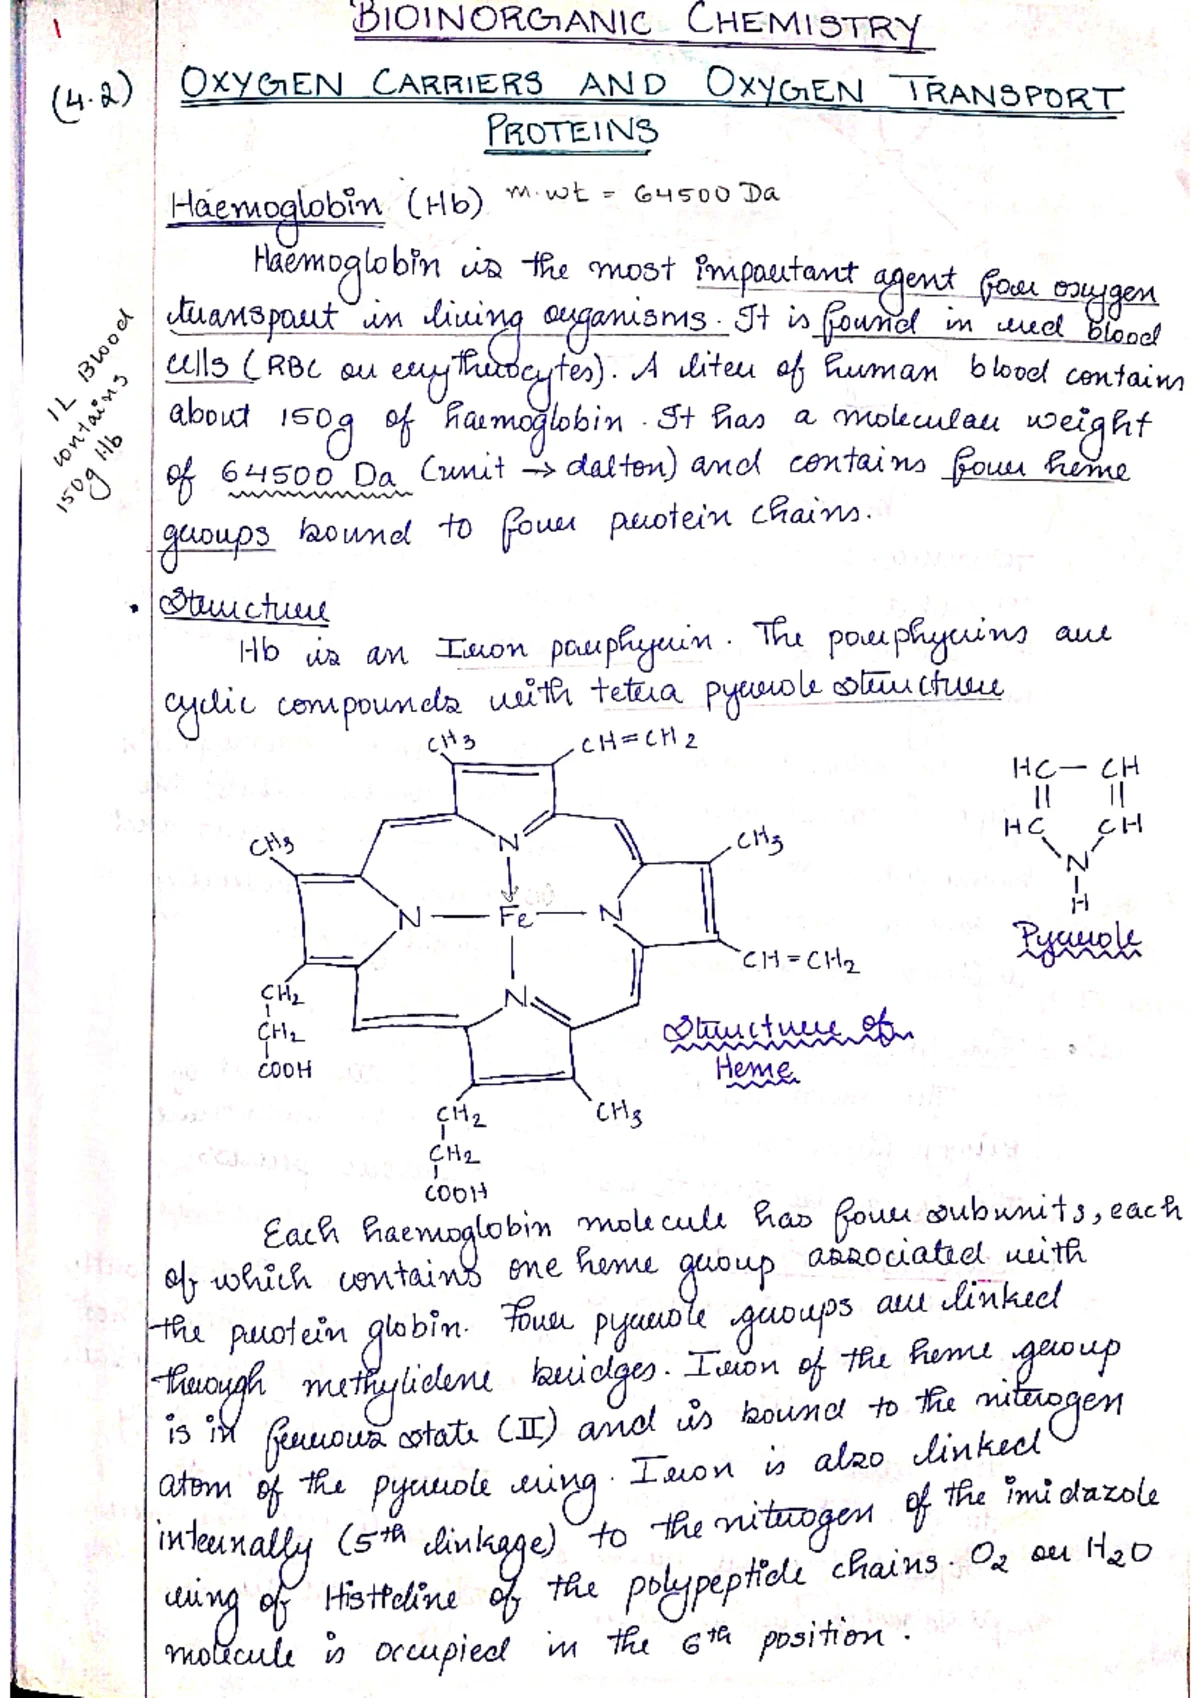 1
BIOINORGANIC CHEMISTRY
(4.2) OXYGEN CARRIERS AND OXYGEN TRANSPORT
PROTEINS
Haemoglobin (Hb) m.wt = 64500 Da
Haemoglobin is the most important agent for oxygen
transport in living organisms. It is found in red blood
cells (RBC or erythrocytes). A liter of human blood contains
about 150g of haemoglobin. It has a molecular weight
of 64500 Da (unit → dalton) and contains four heme
groups bound to four protein chains.
1L Blood
contains
150g Hb
• Structure
Hb is an Iron porphyrin. The porphyrins are
cyclic compounds with tetra pyrrole structure
CH3 CH=CH2
HC — CH
|| ||
HC CH
N
H
Pyrrole
CH3 N CH3
N — Fe — N
CH=CH2
CH2 N
CH2
COOH
Structure of
Heme
CH2 CH3
CH2
COOH
Each haemoglobin molecule has four subunits, each
of which contains one heme group associated with
the protein globin. Four pyrrole groups are linked
through methylidene bridges. Iron of the heme group
is in ferrous state (II) and is bound to the nitrogen
atom of the pyrrole ring. Iron is also linked
internally (5th linkage) to the nitrogen of the imidazole
ring of Histidine of the polypeptide chains. O2 or H2O
molecule is occupied in the 6th position.